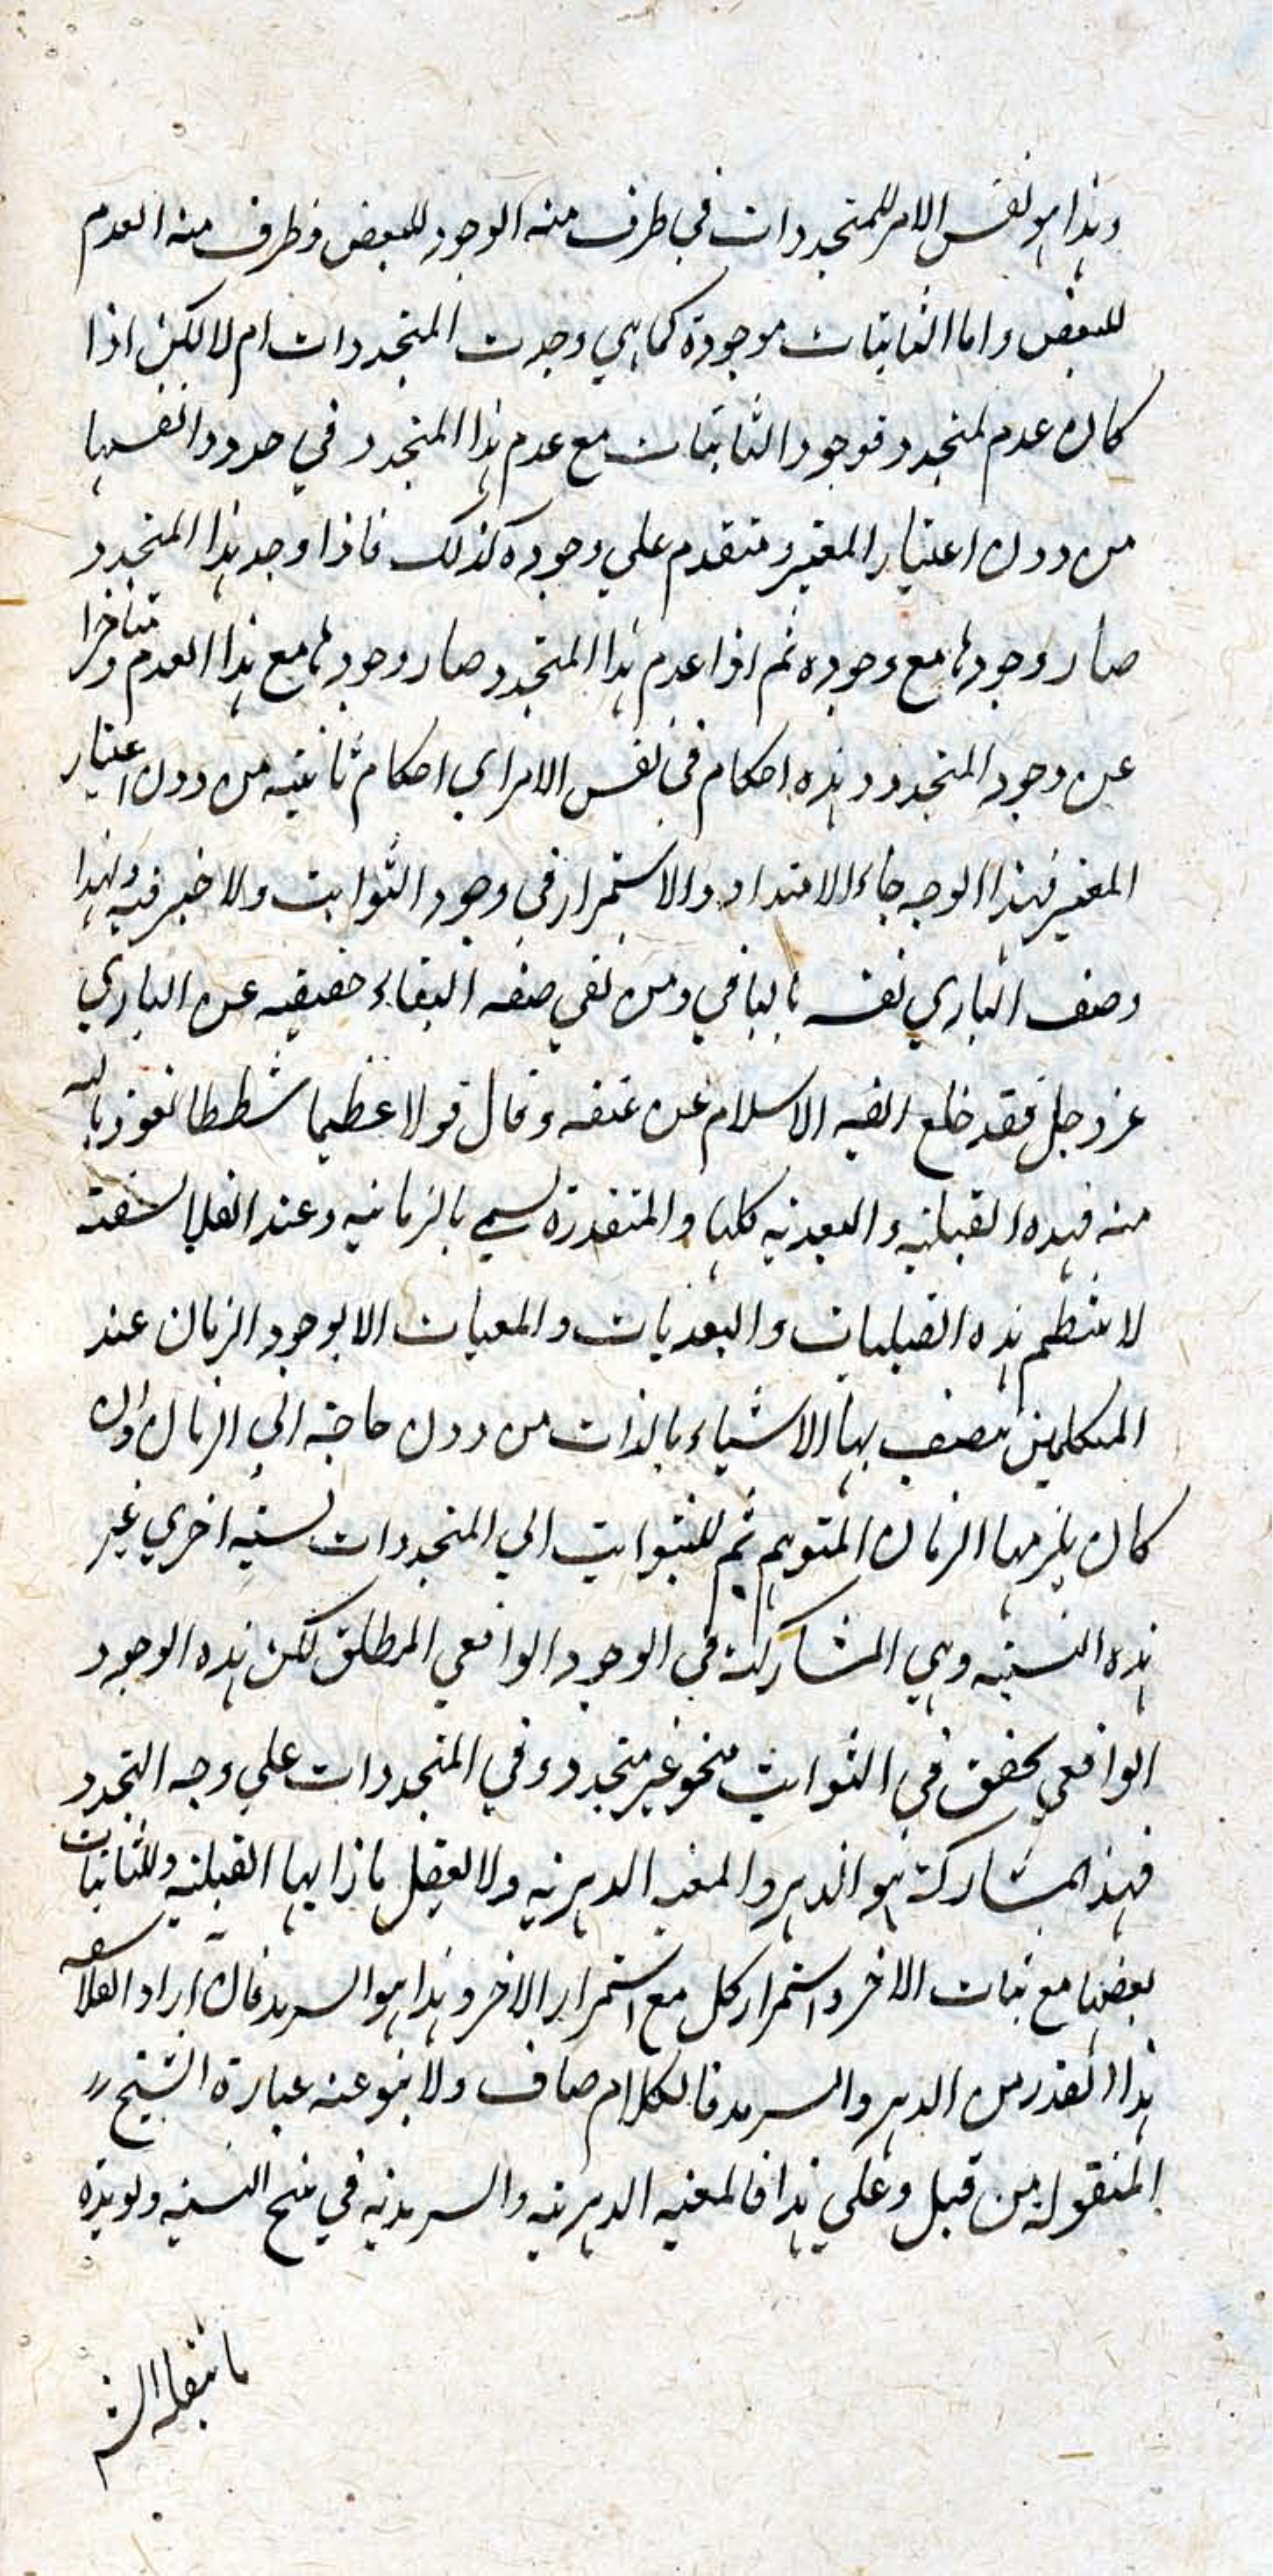 وهذا هو نفس الامر للمتجددات في طرف منه الوجود للبعض وظرف منه العدم
للبعض واما الثابتات موجودة كما هي وجدت المتجددات ام لا لكن اذا
كان عدم لمتجدد فوجود الثابتات مع عدم هذا المتجدد في حدود انفسها
من دون اعتبار المعتبر ومتقدم علي وجوده كذلك فاذا وجد هذا المتجدد
صار وجودها مع وجوده ثم اذا عدم هذا المتجدد صار وجودها مع هذا العدم ومتاخرا
عن وجود المتجدد وهذه احكام في نفس الامر اي احكام ثابتة من دون اعتبار
المعتبر فبهذا الوجه جاء الامتداد والاستمرار في وجود الثوابت ولا خير فيه ولهذا
وصف الباري نفسه بالباقي ومن نفي صفة البقاء حقيقة عن الباري
عز وجل فقد خلع الاسلام عن عنقه وقال قولا عظيما شططا نعوذ بالله
منه فهذه القبلية والبعدية كلها والمتقدرة يسمي بالزمانية وعند الفلاسفة
لا ينتظم هذه القبليات والبعديات والمعيات الا بوجود الزمان عند
المتكلمين يتصف بها الاشياء بالذات من دون حاجة الي الزمان وان
كان يلزمها الزمان المتوهم ثم للثوابت الي المتجددات نسبة اخري غير
هذه النسبة وهي المشاركة في الوجود الواقعي المطلق لكن هذه الوجود
الواقعي يحقق في الثوابت بنحو غير متجدد وفي المتجددات علي وجه التجدد
فهذا المشاركة هو الدهر والمعية الدهرية ولا يعقل بازائها القبلية وللثابتات
بعضها مع ثبات الاخر واستمرار كل مع استمرار الاخر وهذا هو السرمد فان اراد الفلاسفة
هذا القدر من الدهر والسرمد فالكلام صاف ولا ينبو عنه عبارة الشيخ
المنقولة من قبل وعلي هذا فالمعية الدهرية والسرمدية في النسبة ويويده
ما ينقله